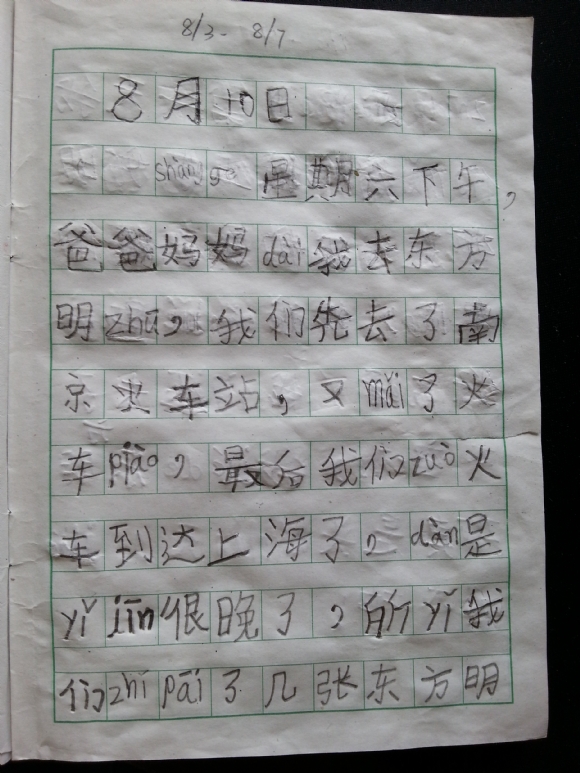 8/3- 8/7
8月10日
shàng ge 星期六下午，
爸爸妈妈dài我去东方
明zhū，我们先去了南
京火车站，又mǎi了火
车piào，最后我们zuò火
车到达上海了，dàn是
yǐ jīn很晚了，所yǐ我
们zhǐ pāi了几张东方明